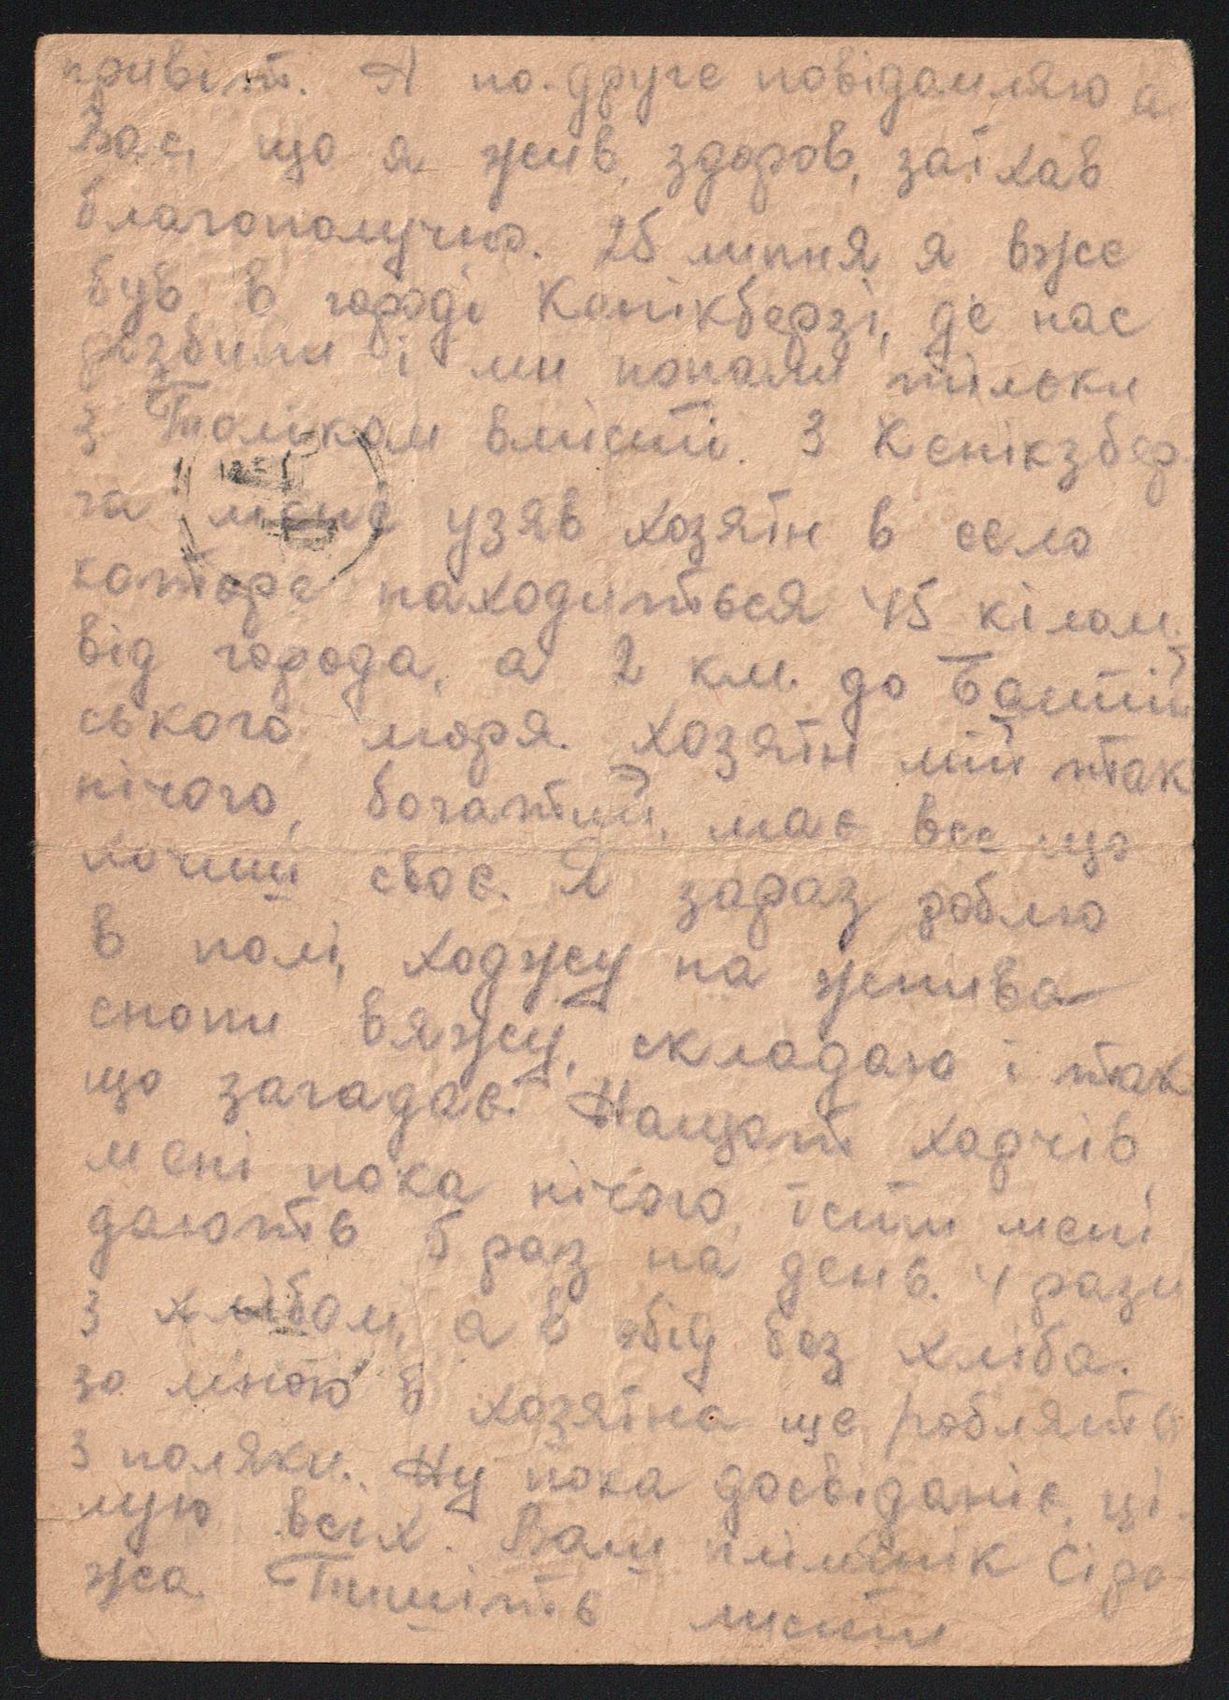 привіт. А по-друге повідомляю а
Вас, що я жив, здоров, заїхав
благополучно. 25 липня я вже
був в городі Конікберзі, де нас
розбили і ми попали тільки
з Толіком вмісті. З Кенікзбер
га мене узяв хозяїн в село
которе находиться 45 кілом.
від города, а 2 км. до Балтій
ського моря. Хозяїн мій так
нічого, богатий, має все що
хочиш своє. Я зараз роблю
в полі, ходжу на жнива
снопи вяжу, складаю і так
що загадає. Нащот харчів
мені пока нічого, їсти мені
дають 5 раз на день. 4 рази
з хлібом, а в обід без хліба.
зо мною в хозяїна ще роблять
3 поляки. Ну пока досвіданіє, ці
лую всіх. Ваш плімєнік Сіро
жа Пишіть листи